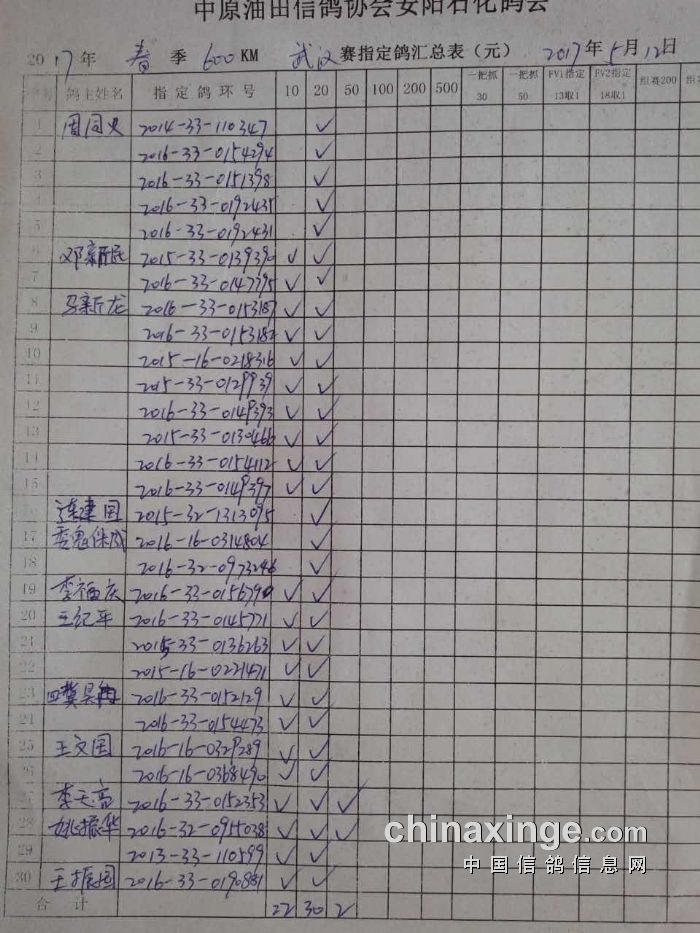 中原油田信鸽协会安阳石化鸽会
2017年 春 季 600 KM 武汉 赛指定鸽汇总表（元） 2017年5月12日
鸽主姓名 指定鸽环号 10 20 50 100 200 500 一把抓30 一把抓50 FV1指定13取1 FV2指定18取1 组赛200
1 周同火 2014-33-110347 ✓
2 2016-33-0154294 ✓
3 2016-33-0151398 ✓
4 2016-33-0192435 ✓
5 2016-33-0192431 ✓
6 邓新民 2015-33-0139390 ✓ ✓
7 2016-33-0147795 ✓ ✓
8 马新龙 2016-33-0153187 ✓ ✓
9 2016-33-0153182 ✓ ✓
10 2015-16-0218316 ✓ ✓
11 2015-33-0129939 ✓ ✓
12 2016-33-0149393 ✓ ✓
13 2015-33-0130466 ✓ ✓
14 2016-33-0154112 ✓ ✓
15 2016-33-0149397 ✓ ✓
连建国 2015-32-1313095 ✓
17 2016-16-0314804 ✓
18 2016-32-0973246 ✓
19 李福庆 2016-33-0156790 ✓ ✓
20 王纪平 2016-33-0145771 ✓ ✓
21 2015-33-0136263 ✓ ✓
22 2015-16-0221471 ✓ ✓
23 2016-33-0152129 ✓ ✓
24 2016-33-0154473 ✓ ✓
25 王文国 2016-16-0329289 ✓ ✓
26 2016-16-0368490 ✓ ✓
27 李天高 2016-33-0152353 ✓ ✓ ✓
28 姚振华 2016-32-0955038 ✓ ✓ ✓
29 2013-33-110599 ✓ ✓
30 王振国 2016-33-0190881 ✓ ✓
合计 22 30 2
chinaxinge.com
中国信鸽信息网